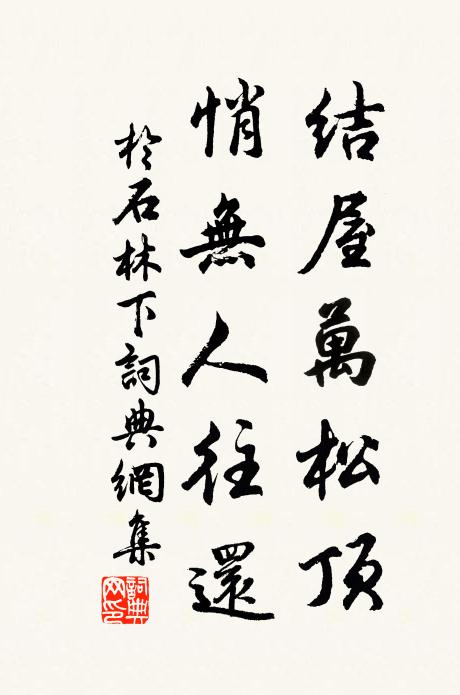 结屋萬松頂
悄無人往還
於石林下詞典網集
詞典
网印